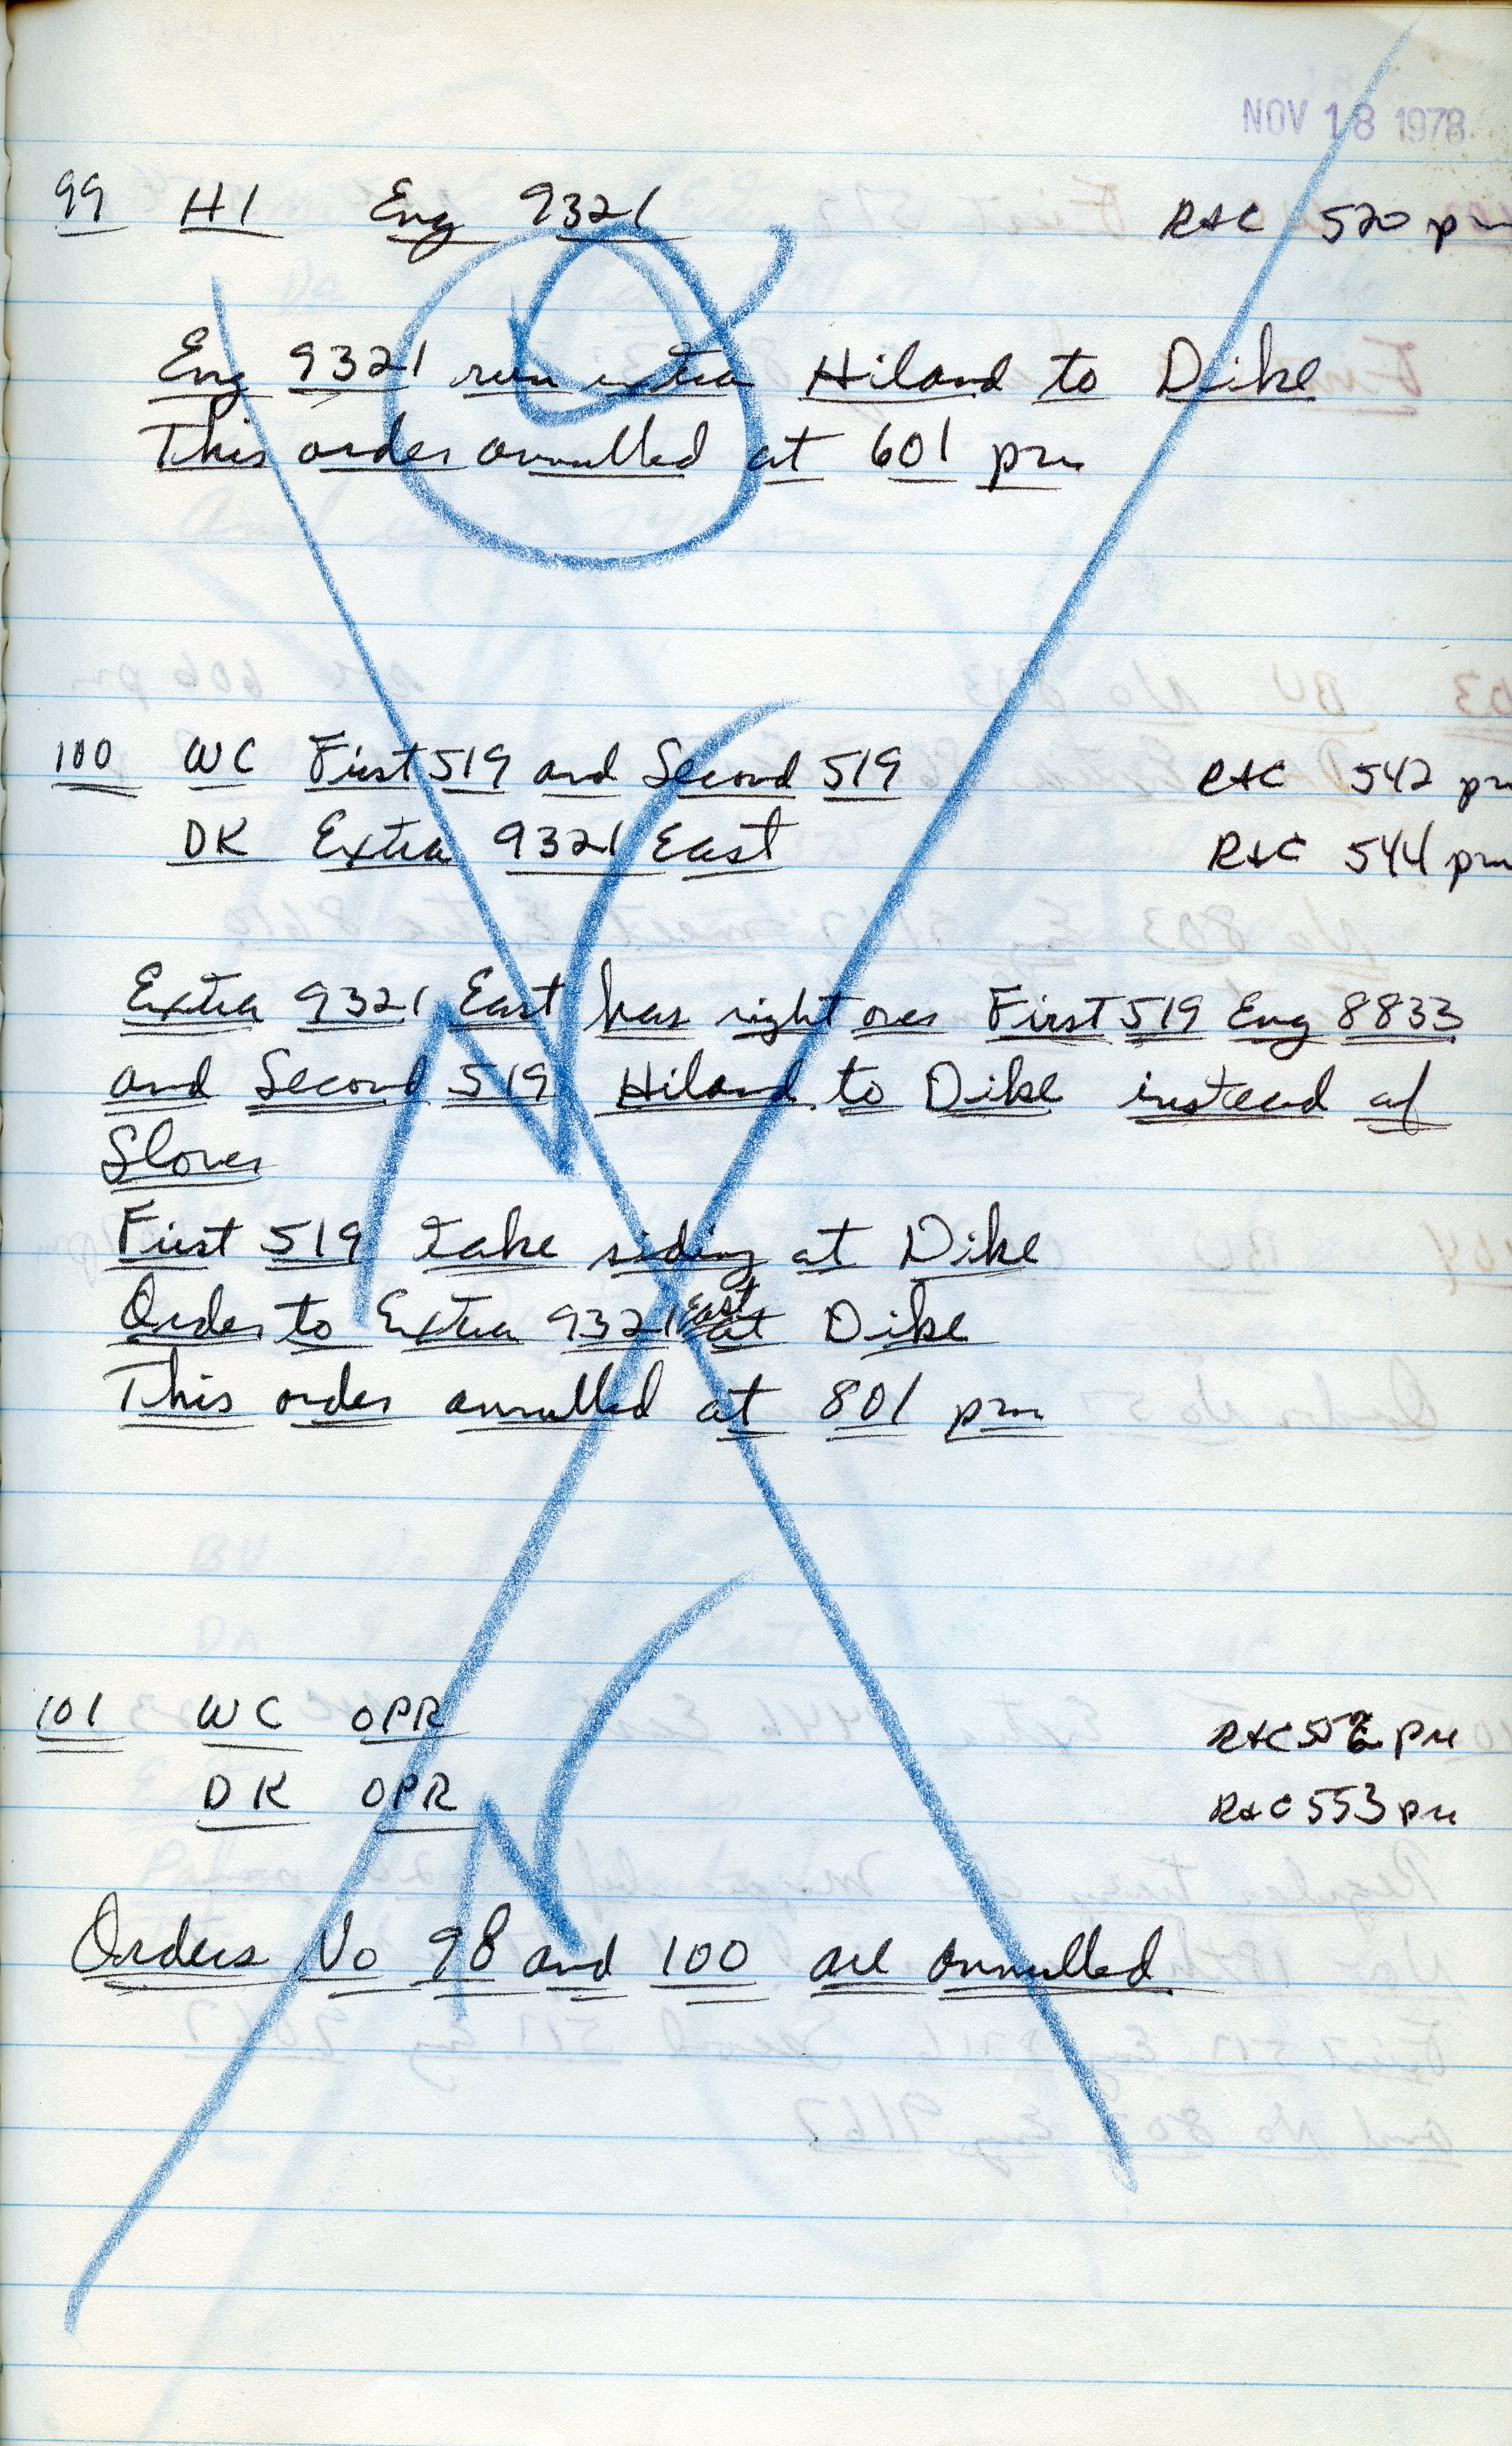 NOV 18 1978
99 HI Eng 9321 R&C 520 pm
Eng 9321 run extra Hiland to Dike
This order annulled at 601 pm
100 WC First 519 and Second 519 R&C 542 pm
DK Extra 9321 East R&C 544 pm
Extra 9321 East has right over First 519 Eng 8833
and Second 519 Hiland to Dike instead of
Slover
First 519 take siding at Dike
Order to Extra 9321 East at Dike
This order annulled at 801 pm
101 WC OPR R&C pm
DK OPR R&C 553 pm
Orders No 98 and 100 are annulled